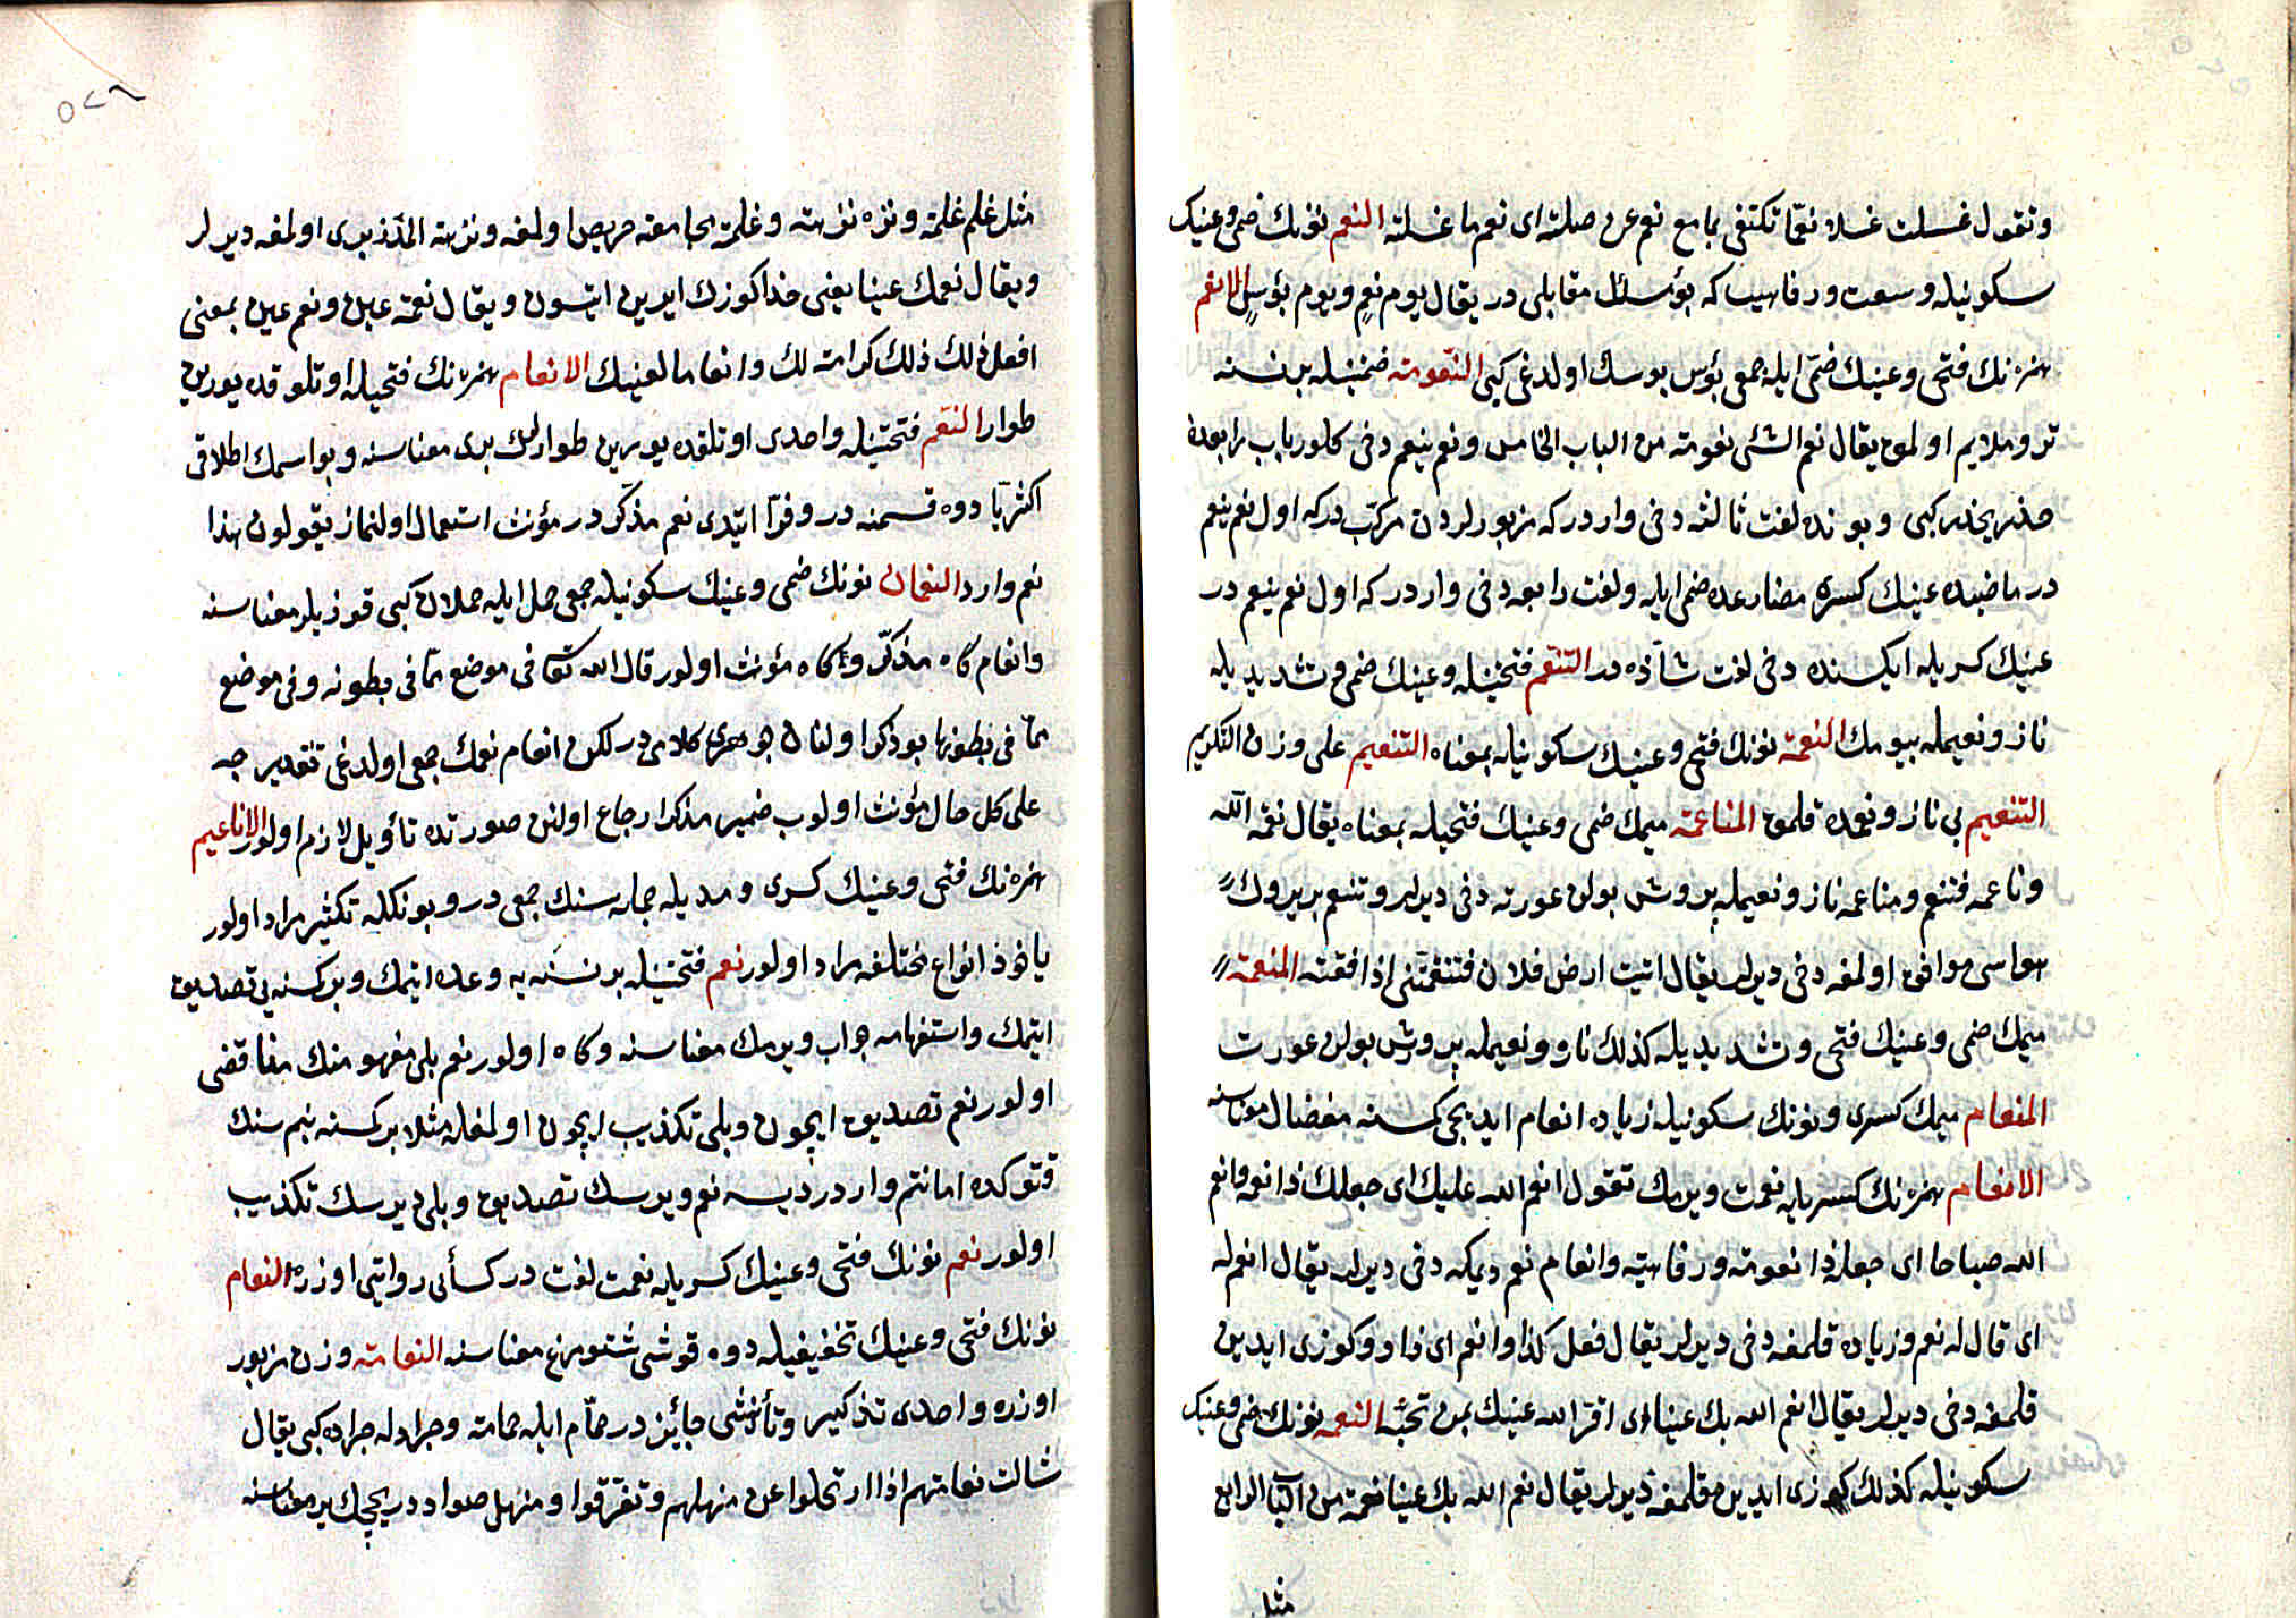 وتقول غسلت غسلا نعمّا تكتفى بما مع نعم عن صلته اى نعم ما غسلته النعم نونك ضمى وعينك
سكونيله وسعت ورفاهيت كه بؤسك مقابلى در يقال يوم نعم ويوم بؤس الانعم
همزه نك فتحى وعينك ضمّى ايله جمعى بؤس بوسك اولدغى كبى النعومة ضمتينله بر نسنه
تر وملايم اولمق يقال نعم الشئ نعومة من الباب الخامس ونعم ينعم دخى كلور باب رابعدن
حذر يحذر كبى وبونده لغت ثالثه دخى واردر كه مزبورلردن مركّبدر كه اول نعم ينعم
در ماضيده عينك كسره مضارعده ضمى ايله ولغت رابعه دخى واردر كه اول نعم ينعم در
عينك كسريله ايكسنده دخى لغت شاذّه در التنعّم فتحتينله وعينك ضمى وتشديديله
ناز ونعيمله بيومك النعمة نونك فتحى وعينك سكونيله بمعناه التنعيم على وزن التكريم
التنعيم بى ناز ونعمده قلمق المناعمة ميمك ضمى وعينك فتحيله بمعناه يقال نعّمه الله
وناعمه فتنعم ومناعمه ناز ونعيمله پرورش بولن عورته دخى ديرلر وتنعم بر يروك
هواسى موافق اولمغه دخى ديرلر يقال اتيت ارض فلان فتنعّمتنى اذا وافقته المنعمة
ميمك ضمى وعينك فتحى وتشديديله كذلك ناز ونعيمله پرورش بولن عورت
المنعام ميمك كسرى ونونك سكونيله زياده انعام ايديجى كمسنه مفضال معناسنه
الانعام همزه نك كسريله نعمت ويرمك تقول انعم الله عليك اى جعلك ذا نعمة وانعم
الله صباحا اى جعله ذا نعومة ورفاهية وانعام نعم ديمكه دخى ديرلر يقال انعم له
اى قال له نعم وزياده قلمغه دخى ديرلر يقال فعل كذا وانعم اى زاد وكوزى ايدين
قلمغه دخى ديرلر يقال انعم الله بك عينا اى اقر الله عينك بمن تحبّه النعمه نونك ضمى وعينك
سكونيله كذلك كوزى ايدين قلمغه ديرلر يقال نعم الله بك عينا نعمة من الباب الرابع
مثل
٥٢٦
مثل غلم غلمة ونزه نزهة وغلمة مجامعته حريص اولمغه ونزهة اولمغه ديرلر
ويقال نعمك عينا يعنى خدا كوزك ايدين ايتسون ويقال نعمة عين ونعم عين بمعنى
افعل ذلك كرامة لك وانعاما لعينك الانعام همزه نك فتحيله اوتلوقده يورين
طوار النعم فتحتينله واحدى اوتلقده يورين طوارلك برى معناسنه وبو اسمك اطلاقى
اكثريّا دوه قسمنه در وفرّا ايتدى نعم مذكّر در مؤنث استعمال اولنماز يقولون هذا
نعم وارد النعمان نونك ضمى وعينك سكونيله جمعى حمل ايله حملان كبى قوزيلر معناسنه
وانعام كاه مذكّر وكاه مؤنث اولور قال الله تعا فى موضع ممّا فى بطونه وفى موضع
ممّا فى بطونها بو ذكر اولنان جوهرى كلامى در لكن انعام نعمك جمعى اولدغى تقديرجه
على كل حال مؤنث اولوب ضمير مذكر ارجاع اولنن صورتده تأويل لازم اولور الاناعيم
همزه نك فتحى وعينك كسرى ومديله جمله سنك جمعى در وبونكله تكثير مراد اولور
ياخوذ انواع مختلفه مراد اولور نعم فتحتينله بر نسنه يه وعده ايتمك وبر كمسنه يى تصديق
ايتمك واستفهامه جواب ويرمك معناسنه وكاه اولور نعم بلى مفهومنك مناقضى
اولور نعم تصديق ايچون وبلى تكذيب ايچون اولمغله مثلا بر كمسنه بنم سنك
قتوكده امانتم واردر ديسه نعم ديرسك تصديق وبلى ديرسك تكذيب
اولور نعم نونك فتحى وعينك كسريله نعمت لغت در كسأى روايتى اوزره النعام
نونك فتحى وعينك تخفيفيله دوه قوشى شترمرغ معناسنه النعامة وزن مزبور
اوزره واحدى تذكير وتأنيثى جائز در حمّام ايله حمامة وجراد له جراده كبى يقال
شالت نعامتهم اذا ارتحلوا عن منهلهم وتفرّقوا ومنهل صواد دريجك ير معناسنه